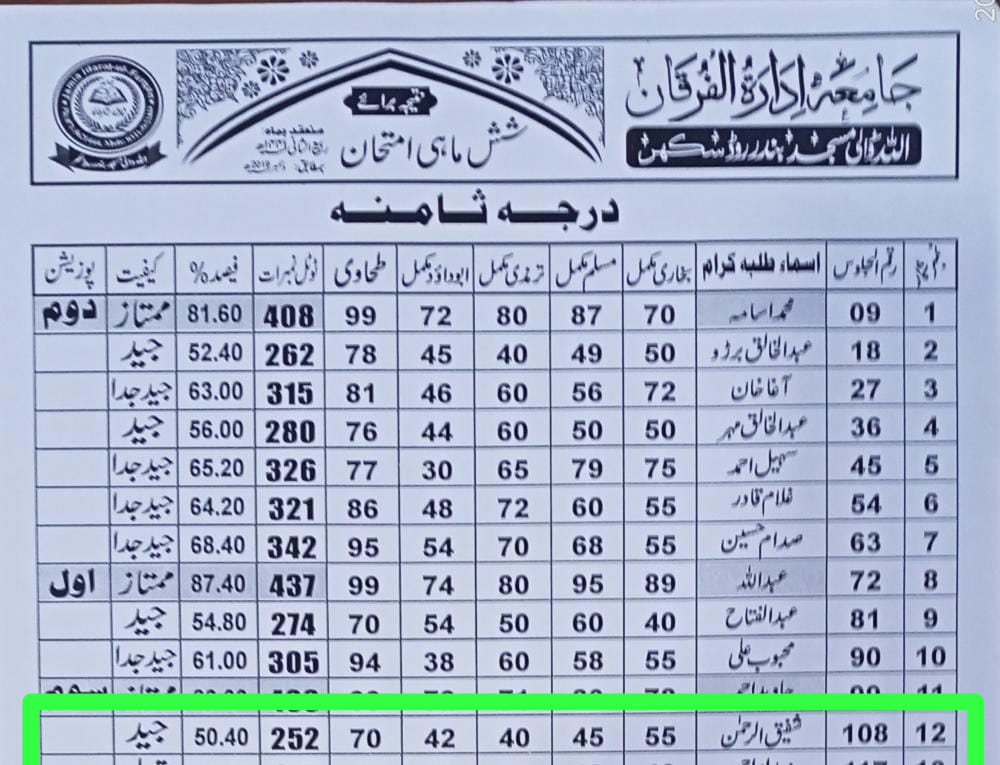 جامعہ إدارة الفرقان
اللہ والی مسجد بندر روڈ سکھر
نتیجہ برائے
شش ماہی امتحان
درجہ ثامنہ
رقم الجلوس اسماء طلبہ کرام بخاری مکمل مسلم مکمل ترمذی مکمل ابوداؤد مکمل طحاوی ٹوٹل نمبرات فیصد% کیفیت پوزیشن
1 09 محمد اسامہ 70 87 80 72 99 408 81.60 ممتاز دوم
2 18 عبدالخالق برڑو 50 49 40 45 78 262 52.40 جید
3 27 آغا خان 72 56 60 46 81 315 63.00 جید جدا
4 36 عبدالخالق مہر 50 50 60 44 76 280 56.00 جید
5 45 سہیل احمد 75 79 65 30 77 326 65.20 جید جدا
6 54 غلام قادر 55 60 72 48 86 321 64.20 جید جدا
7 63 صدام حسین 55 68 70 54 95 342 68.40 جید جدا
8 72 عبداللہ 89 95 80 74 99 437 87.40 ممتاز اول
9 81 عبدالفتاح 40 60 50 54 70 274 54.80 جید
10 90 محبوب علی 55 58 60 38 94 305 61.00 جید جدا
12 108 شفیق الرحمٰن 55 45 40 42 70 252 50.40 جید